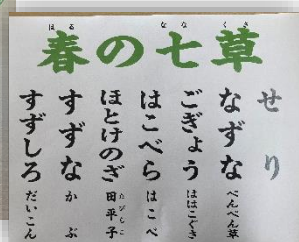 春の七草
はる ななくさ
せり
なずな ぺんぺん草
ごぎょう ははこぐさ
はこべら はこべ
ほとけのざ 田平子 たびらこ
すずな かぶ
すずしろ だいこん